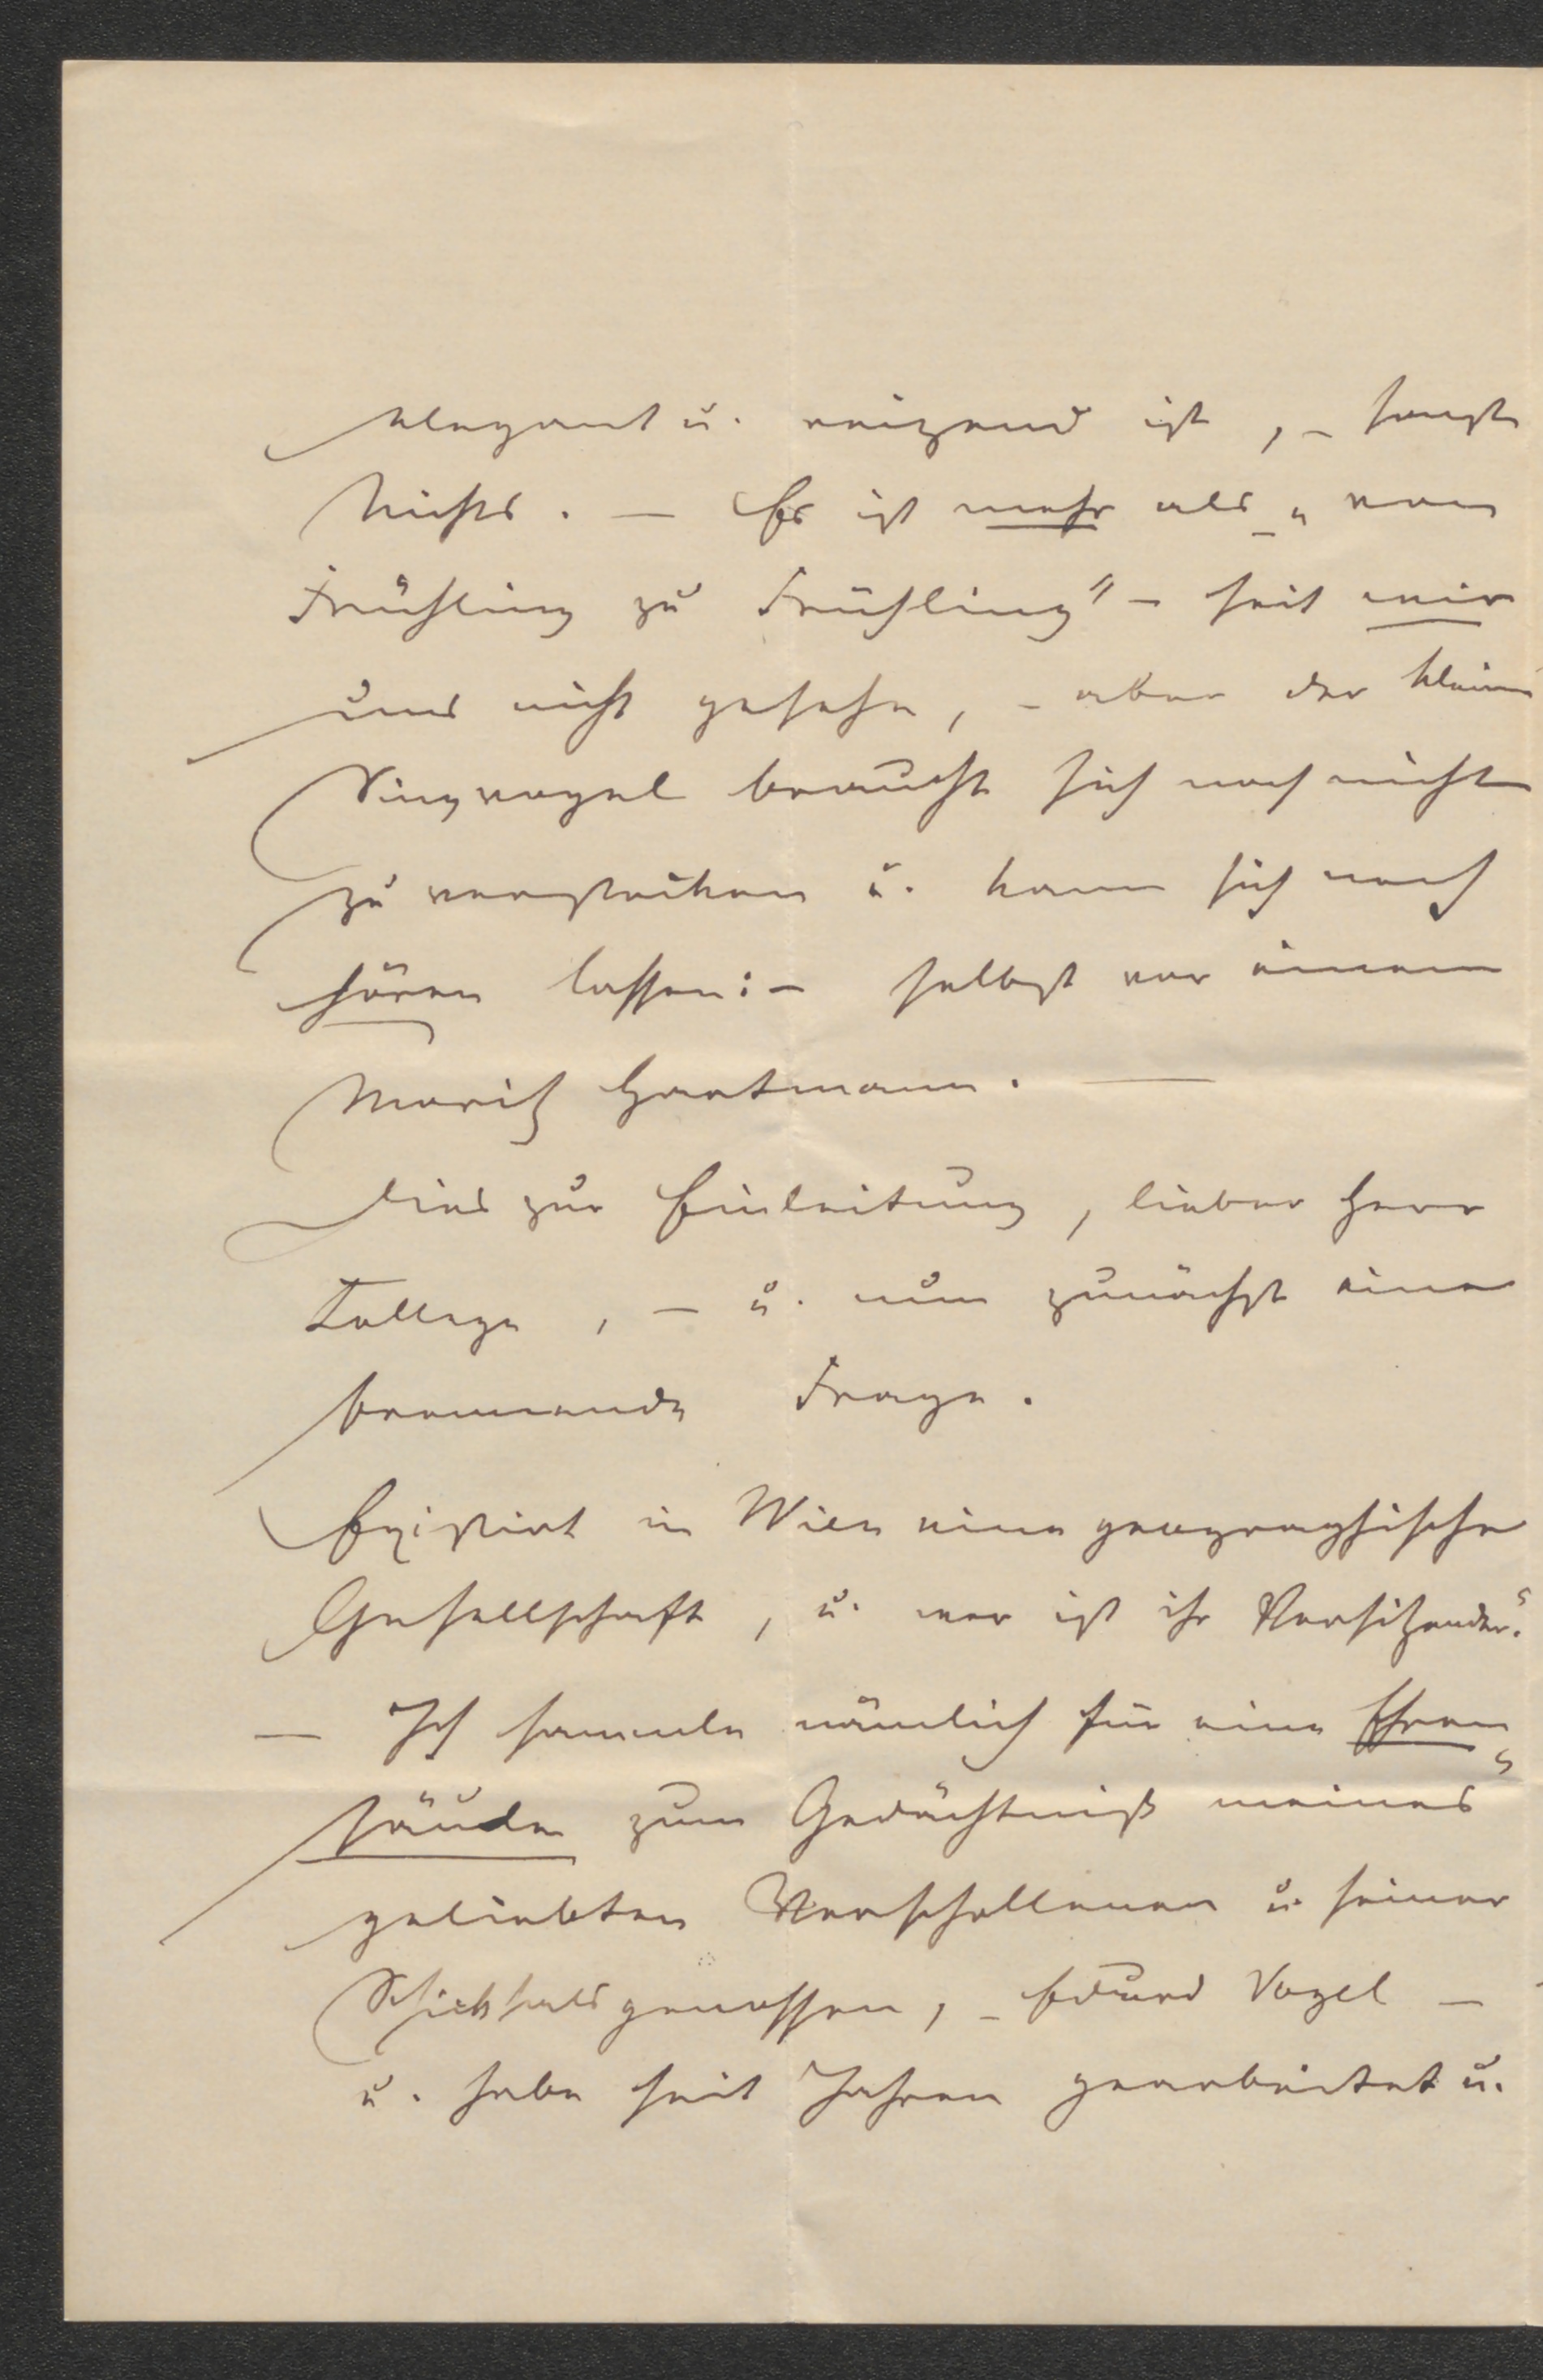 elegant u. reizend ist, – sonst
Nichts. – Es ist mehr als „von
Frühling zu Frühling" – seit wir
uns nicht gesehn, – aber der kleine
Singvogel braucht sich noch nicht
zu verstecken u. kann sich noch
hören lassen: – selbst vor einem
Moritz Hartmann. —
Dies zur Einleitung, lieber Herr
College, – u. nun zunächst eine
brennende Frage.
Existirt in Wien eine geographische
Gesellschaft, u. wer ist ihr Vorsitzender?
— Ich sammle nämlich für eine Ehren„
säule zum Gedächtniß meines
geliebten Verschollenen u. seiner
Schicksalsgenossen, – Eduard Vogel –
u. habe seit Jahren gearbeitet u.